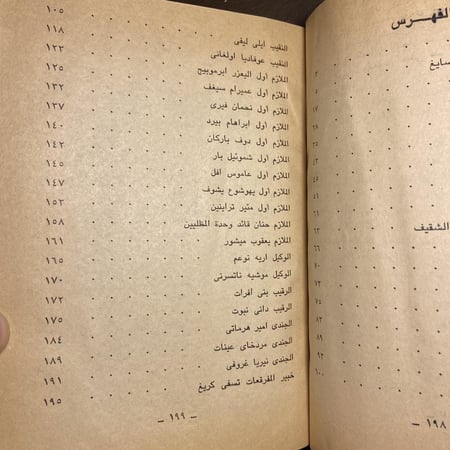 لفهـرس
سايغ
٣
٥
١٧
٢٨
٣٥
٤٥
٥١
الشقيف
٦٦
٧٤
٨٣
٩٣
١٠٠
١٩٨ ـ
النقيب ايلى ليفى ١٠٥
النقيب عوفاديا اولغانى ١١٨
الملازم اول اليعزر ابرموبيج ١٢٣
الملازم اول عميرام سيغف ١٢٥
الملازم اول نحمان فيرى ١٣٢
الملازم اول ابراهام بيرد ١٣٧
الملازم اول دوف باركان ١٤٠
الملازم اول شموئيل بار ١٤٢
الملازم اول عاموس افل ١٤٥
الملازم اول يهوشوع يشوف ١٤٧
الملازم اول مئير تراينين ١٥٣
الملازم حنان قائد وحدة المظليين ١٥٨
الملازم يعقوب ميشور ١٦١
الوكيل اريه نوعم ١٦٥
الوكيل موشيه ناتسرنى ١٧٠
الرقيب بنى افرات ١٧٢
الرقيب دانى نبوت ١٧٥
الجندى امير هرماتى ١٨٤
الجندى مردخاى عينات ١٨٩
الجندى نيريا غروفى ١٩١
خبير المفرقعات تسفى كريغ ١٩٥
ـ ١٩٩ ـ